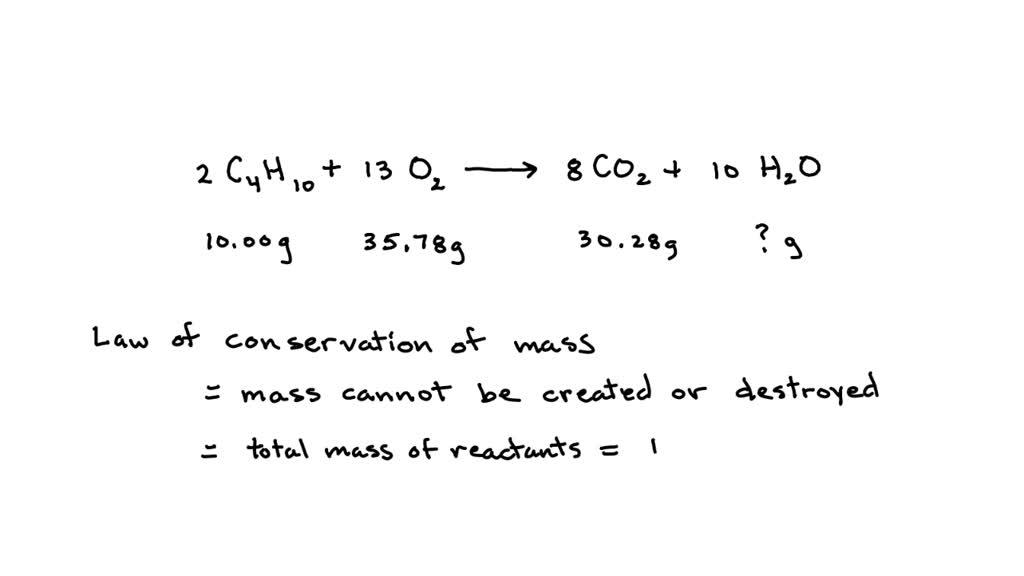 2 C₄H₁₀ + 13 O₂ ⟶ 8 CO₂ + 10 H₂O
10.00g 35.78g 30.28g ? g
Law of conservation of mass
= mass cannot be created or destroyed
= total mass of reactants = l